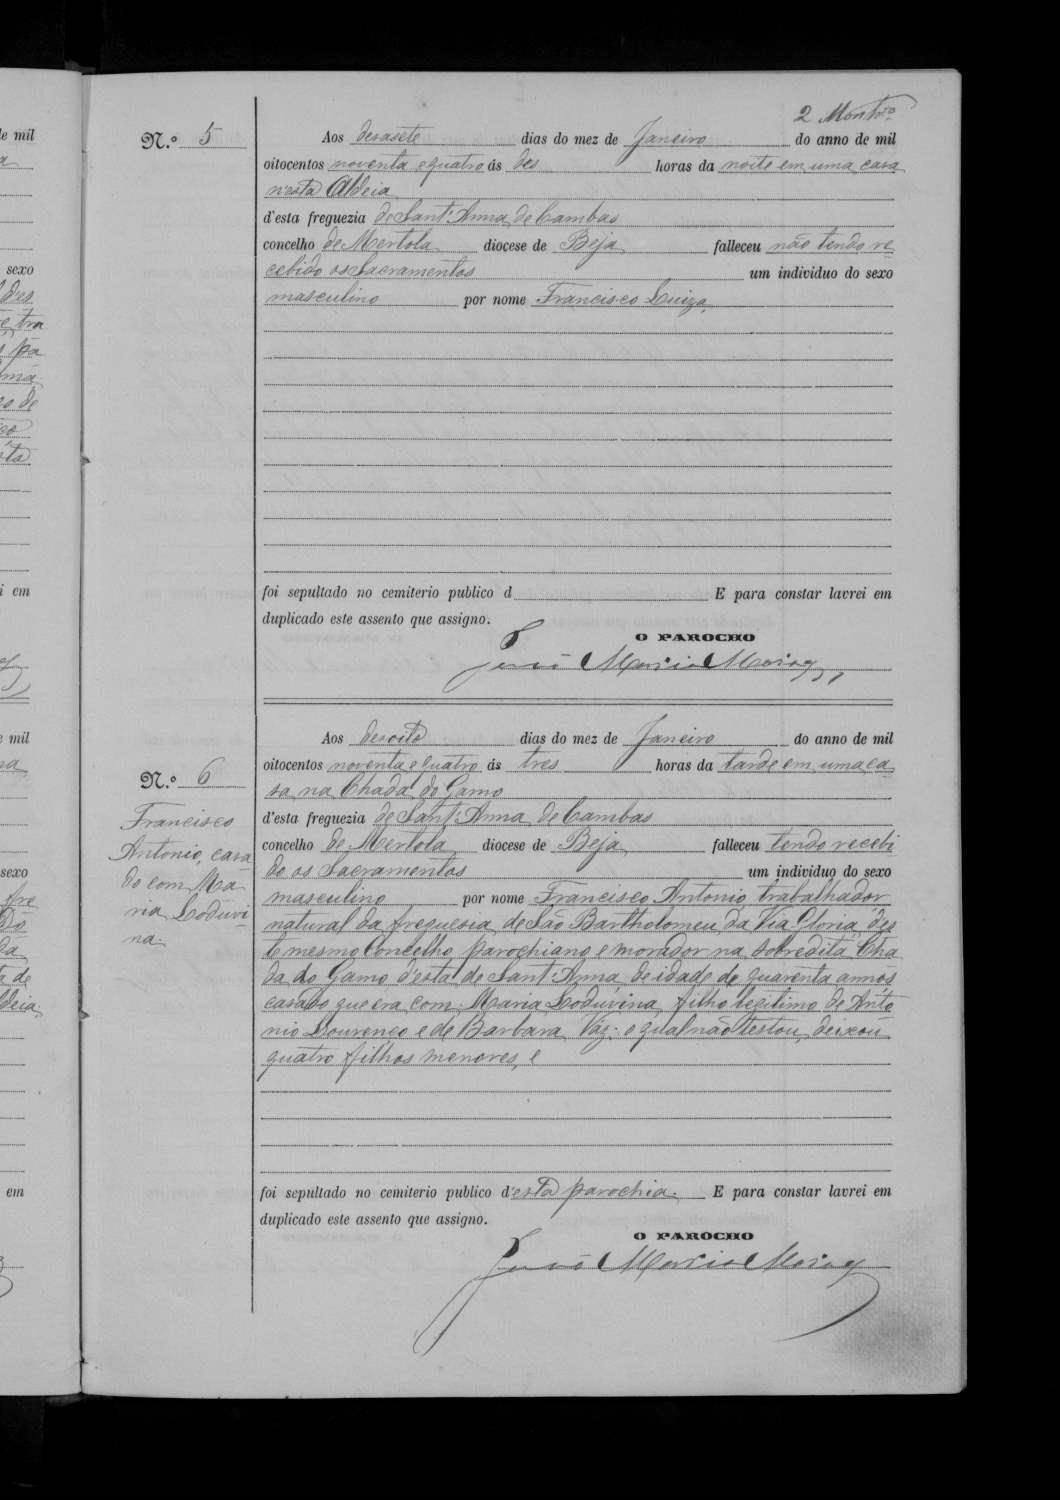 2 Montro
N.º 5
Aos desasete dias do mez de Janeiro do anno de mil
oitocentos noventa e quatro ás des horas da noite em uma casa
n'esta Aldeia
d'esta freguezia de Sant'Anna de Cambas
concelho de Mertola diocese de Beja falleceu não tendo re
cebido os Sacramentos um individuo do sexo
masculino por nome Francisco Luiza,
foi sepultado no cemiterio publico d E para constar lavrei em
duplicado este assento que assigno.
O PAROCHO
José Maria
N.º 6
Francisco
Antonio, casa
do com Ma
ria Loduvi-
na.
Aos desoito dias do mez de Janeiro do anno de mil
oitocentos noventa e quatro ás tres horas da tarde em uma ca
sa na Chada do Gamo
d'esta freguezia de Sant'Anna de Cambas
concelho de Mertola diocese de Beja falleceu tendo recebi
do os Sacramentos um individuo do sexo
masculino por nome Francisco Antonio, trabalhador
natural da freguesia de São Bartholomeu da Via Gloria, des
te mesmo Concelho parochiano e morador na sobredita Cha
da do Gamo, d'esta de Sant'Anna, de idade de quarenta annos
casado que era com Maria Loduvina, filho legitimo de Anto
nio Lourenço e de Barbara Vaz: o qual não testou, deixou
quatro filhos menores, e
foi sepultado no cemiterio publico d'esta parochia. E para constar lavrei em
duplicado este assento que assigno.
O PAROCHO
José Maria
de mil
sexo
des
e, tra
pa
ma
so de
i em
e mil
sexo
fre
Do
da
a de
deia,
em